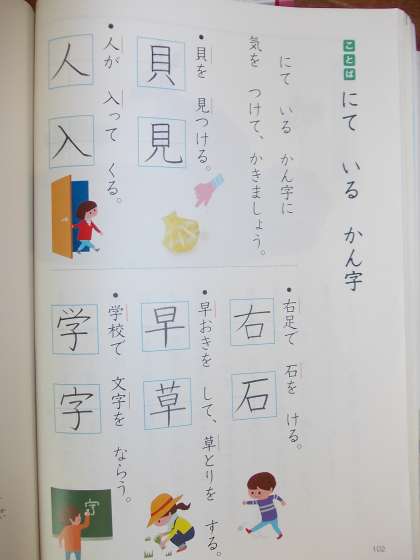 ことば
にて いる かん字
にて いる かん字に
気を つけて、かきましょう。
・貝を 見つける。
貝 見
・人が 入って くる。
人 入
・右足で 石を ける。
右 石
・早おきを して、草とりを する。
早 草
・学校で 文字を ならう。
学 字
字
102